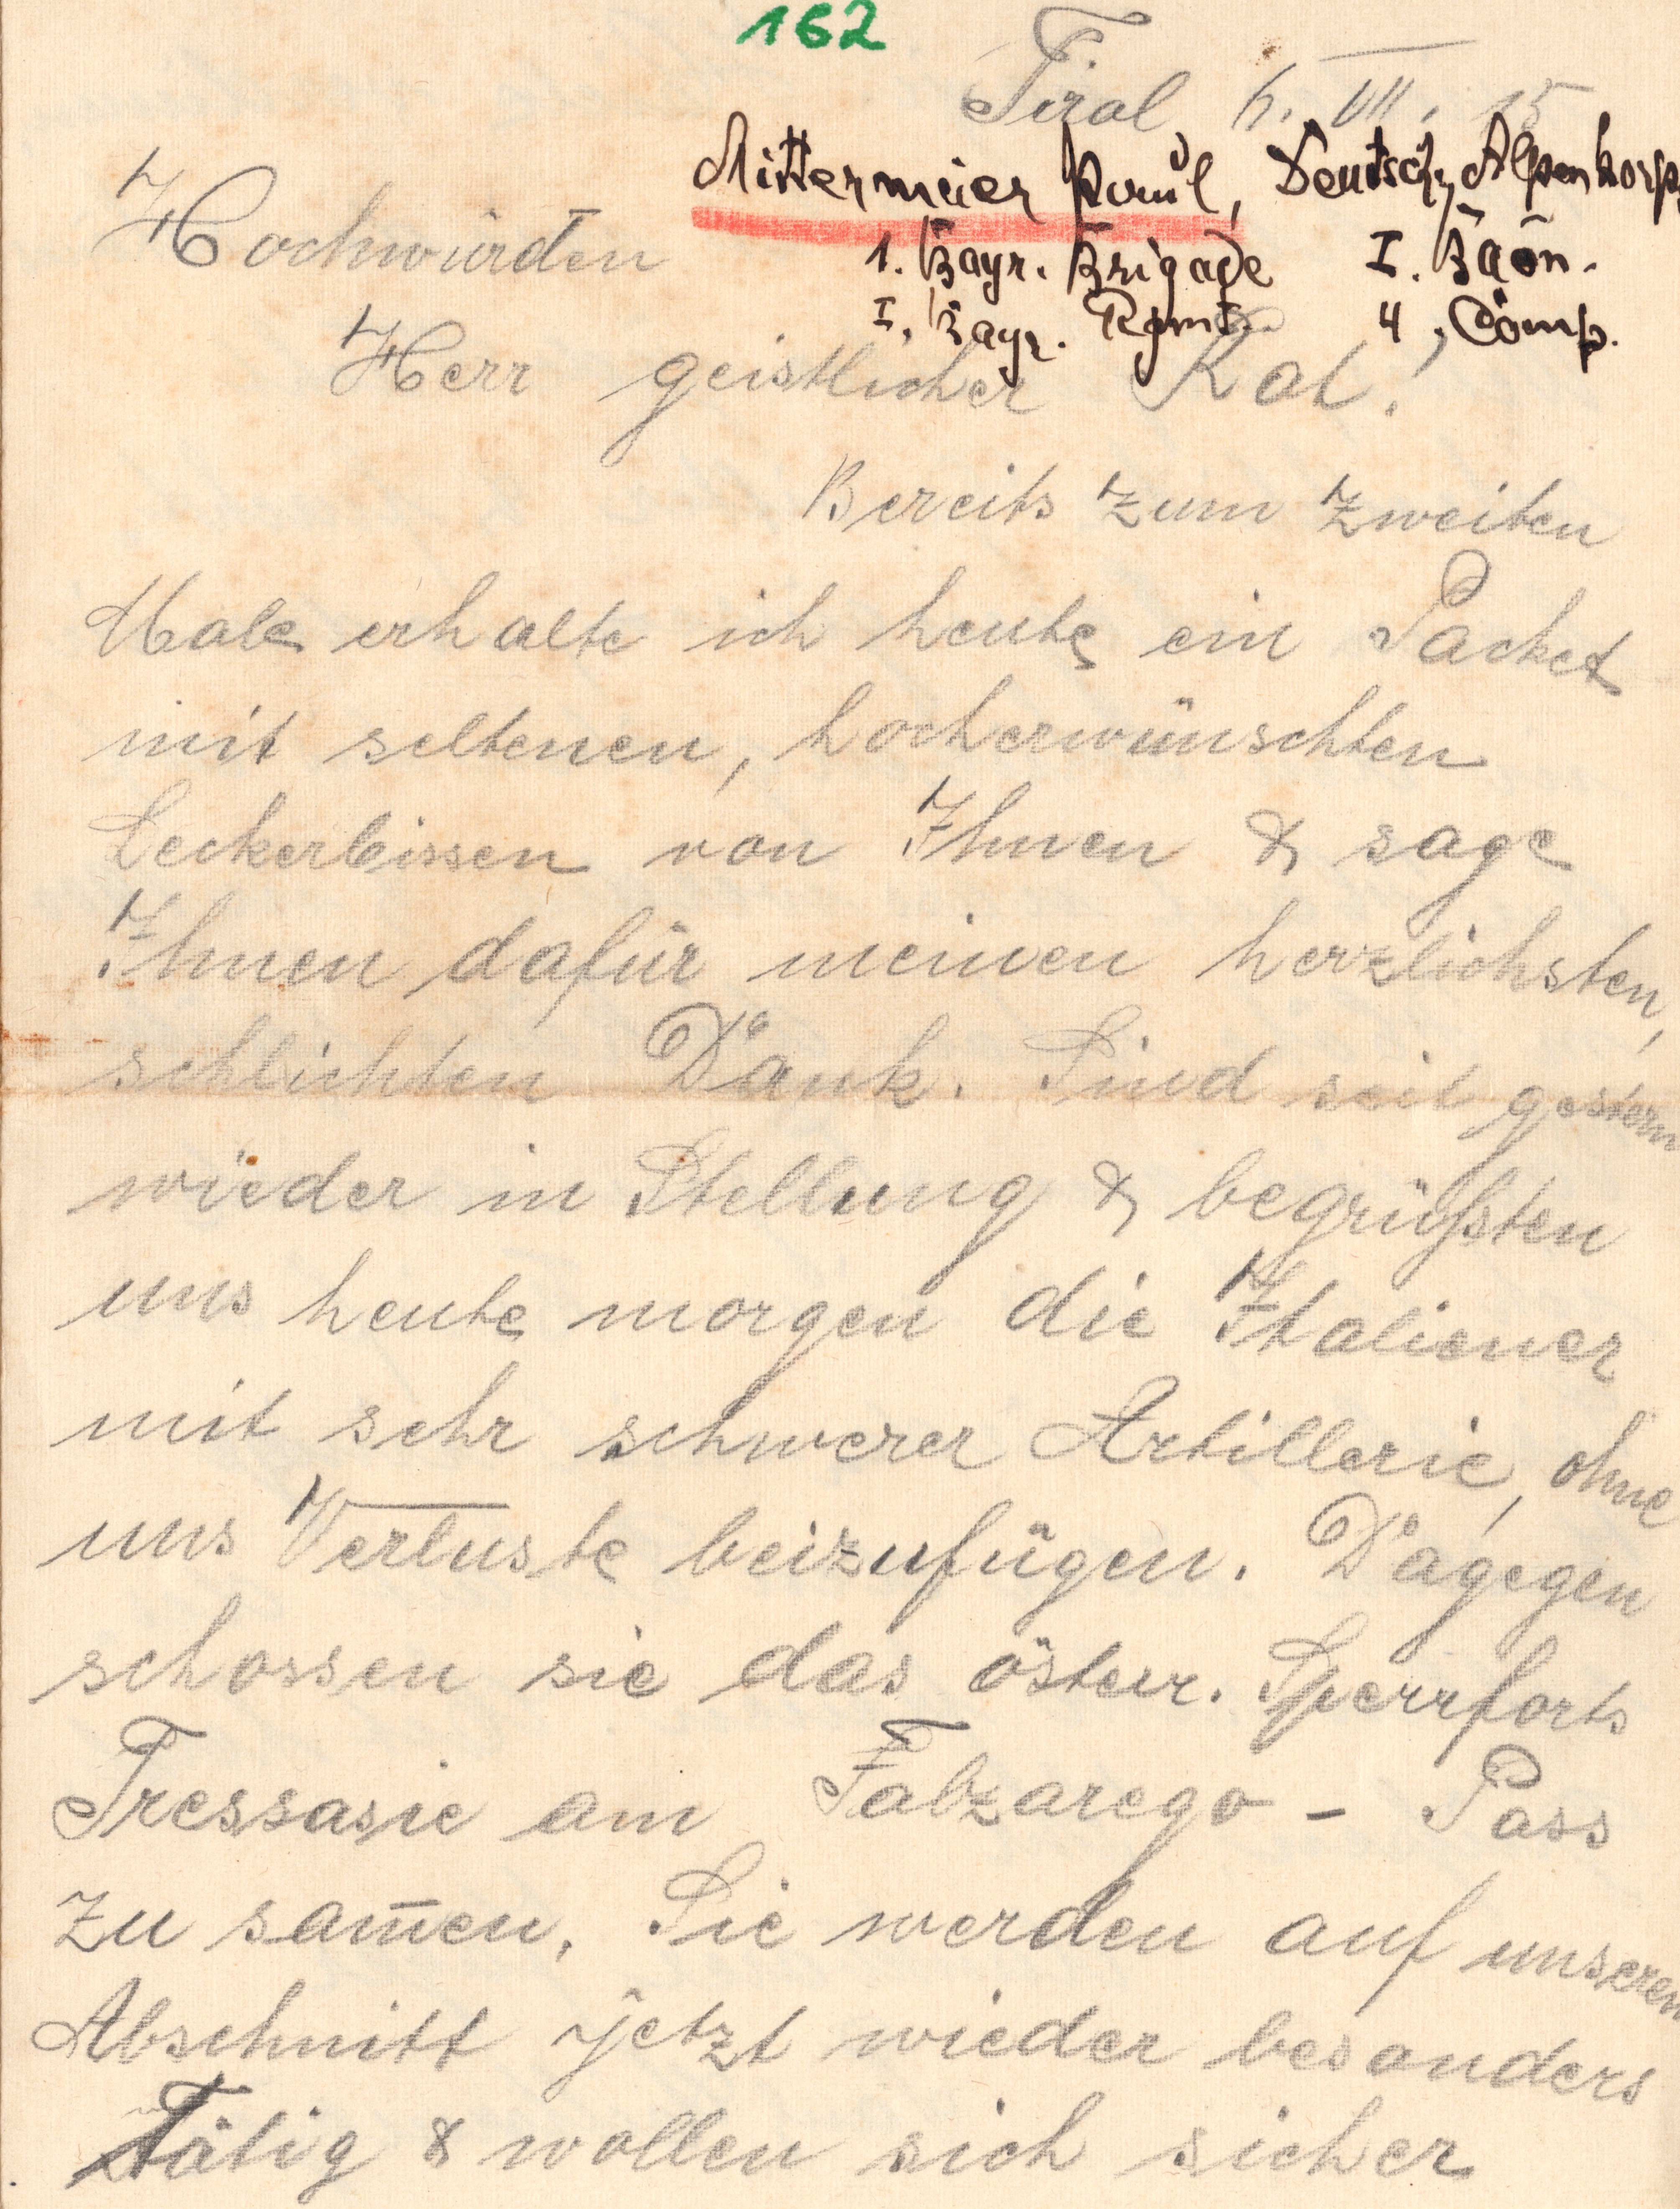 162
Tirol 6. VII. 15
Mittermeier Paul, Deutsch. Alpenkorps,
Hochwürden
1. Bayr. Brigade I. Baon.
I. Bayr. Rgmt. 4, Comp.
Herr geistlicher Rat!
Bereits zum zweiten
Male erhalte ich heute ein Packet
mit seltenen, hocherwünschten
Leckerbissen von Ihnen & sage
Ihnen dafür meinen herzlichsten,
schlichten Dank. Sind seit gestern
wieder in Stellung & begrüßten
uns heute morgen die Italiener
mit sehr schwerer Artillerie, ohne
uns Verluste beizufügen. Dagegen
schossen sie das österr. Sperrforts
Tressasie am Falzarego - Pass
zu sam̅en. Sie werden auf unseren
Abschnitt jetzt wieder besonders
Tätig & wollen sich sicher